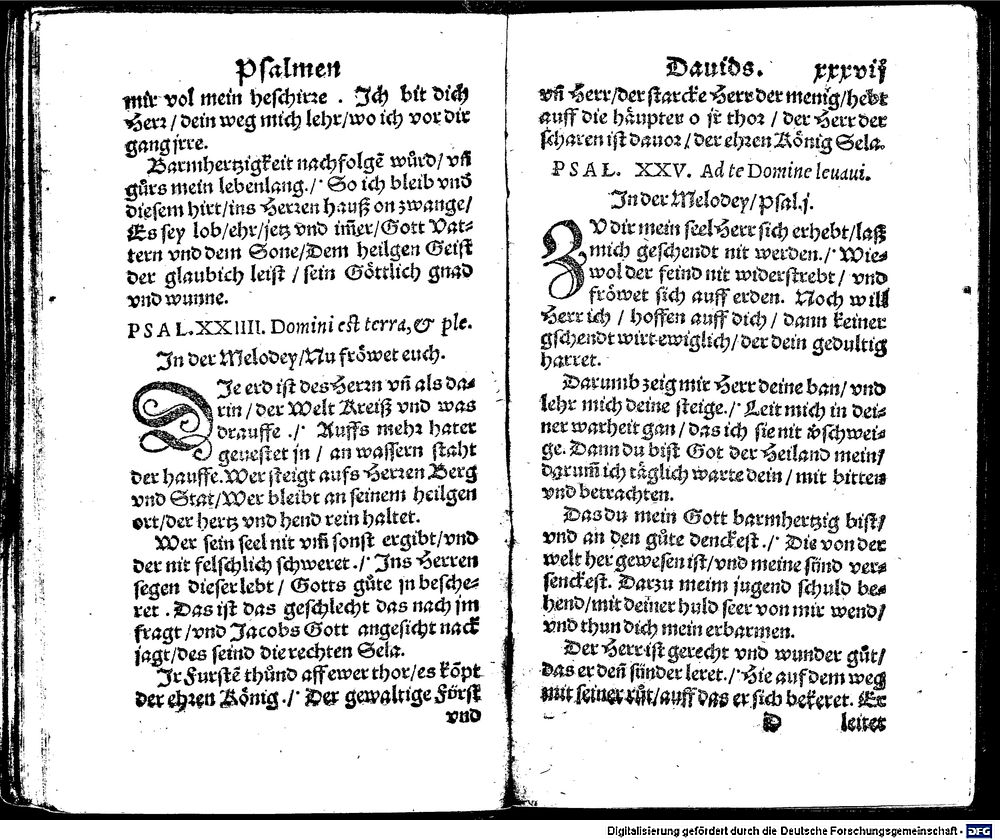 Psalmen
mir vol mein beschirre . Ich bit dich
Herr / dein weg mich lehr / wo ich vor dir
gang jrre.
Barmhertzigkeit nachfolgē würd / vñ
gürs mein lebenlang. /· So ich bleib vnd
diesem hirt / ins Herren hauß on zwange /
Es sey lob / ehr / jetz vnd im̃er / Gott Vat-
tern vnd dem Sone / Dem heilgen Geist
der glaubich leist / sein Göttlich gnad
vnd wunne.
PSAL. XXIIII. Domini est terra, & ple.
In der Melodey / Nu fröwet euch.
DIe erd ist des Herrn vñ als da-
rin / der Welt Kreiß vnd was
drauffe . /· Auffs mehr hater
gevestet jn / an wassern staht
der hauffe. Wer steigt aufs Herren Berg
vnd Stat / Wer bleibt an seinem heilgen
ort / der hertz vnd hend rein haltet.
Wer sein seel nit vm̃ sonst ergibt / vnd
der nit felschlich schweret . /· Ins Herren
segen dieser lebt / Gotts güte jn besche-
ret . Das ist das geschlecht das nach jm
fragt / vnd Jacobs Gott angesicht nach
jagt / des seind die rechten Sela.
Ir Furstē thůnd aff ewer thor / es köpt
der ehren König . /· Der gewaltige Fürst
vnd
Dauids. xxxvij
vñ Herr / der starcke Herr der menig / hebt
auff die häupter o jr thor / der Herr der
scharen ist dauor / der ehren König Sela.
PSAL. XXV. Ad te Domine leuaui.
In der Melodey / Psal. j.
ZV dir mein seel Herr sich erhebt / laß
mich geschendt nit werden. /· Wie-
wol der feind nit widerstrebt / vnd
fröwet sich auff erden. Noch will
Herr ich / hoffen auff dich / dann keiner
gschendt wirt ewiglich / der dein gedultig
harret.
Darumb zeig mir Herr deine ban / vnd
lehr mich deine steige. /· Leit mich in dei-
ner warheit gan / das ich sie nit v̈schwei-
ge. Dann du bist Got der Heiland mein /
darum̃ ich täglich warte dein / mit bitten
vnd betrachten.
Das du mein Gott barmhertzig bist /
vnd an den güte denckest. /· Die von der
welt her gewesen ist / vnd meine sünd ver-
senckest. Darzu meim jugend schuld be-
hend / mit deiner huld seer von mir wend /
vnd thun dich mein erbarmen.
Der Herr ist gerecht vnd wunder gůt /
das er deñ sünder leret. /· Hie auf dem weg
mit seiner růt / auff das er sich bekeret. Er
D leitet
Digitalisierung gefördert durch die Deutsche Forschungsgemeinschaft - DFG